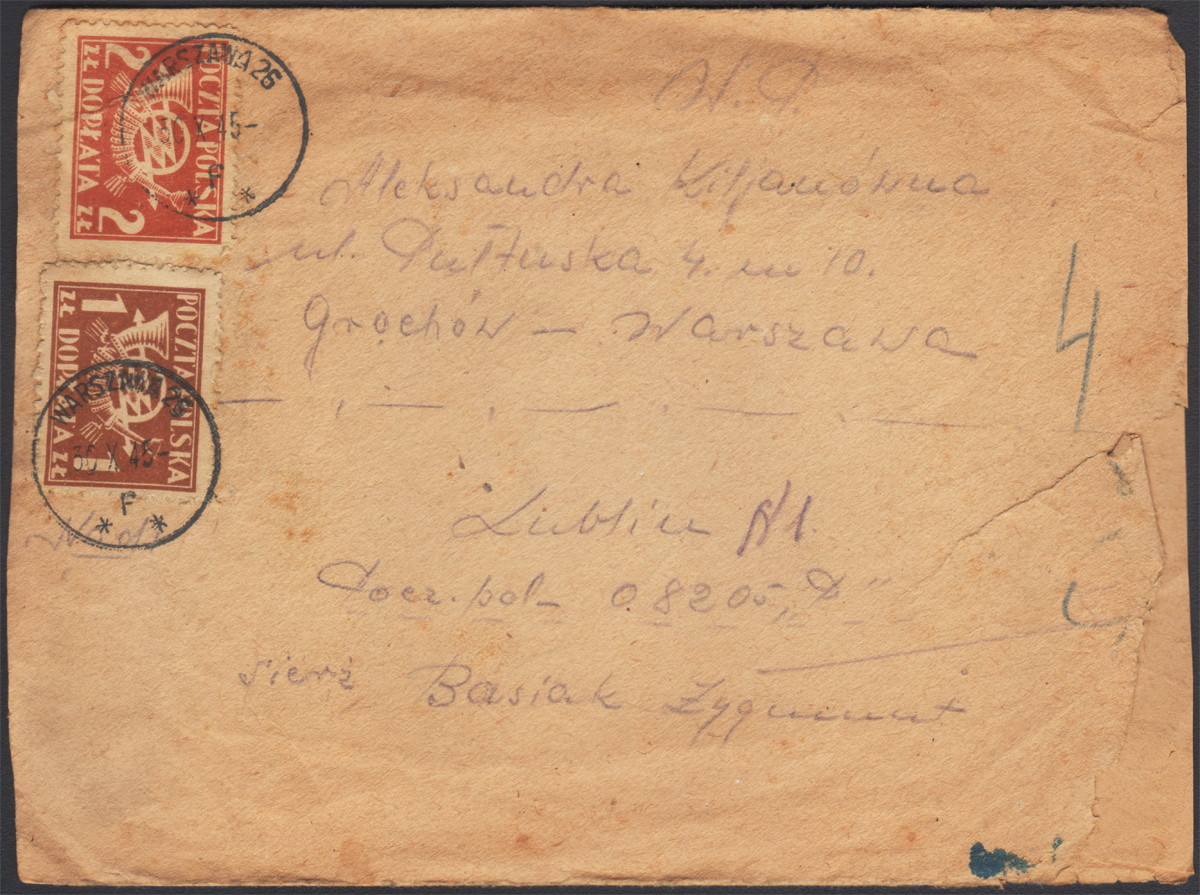 POCZTA POLSKA
2 ZŁ DOPŁATA ZŁ 2
WARSZAWA 26
30 X 45-
F
POCZTA POLSKA
1 ZŁ DOPŁATA ZŁ 1
WARSZAWA 26
30 X 45-
F
W. P.
Aleksandra Kiljanówna
ul. Pułtuska 4. m 10.
Grochów – Warszawa
4
Lublin №1.
Pocz. pol– 08205 "D"
sierż Basiak Zygmunt